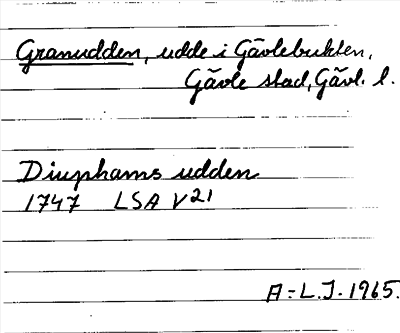 Granudden, udde i Gävlebukten,
Gävle stad, Gävl. l.
Diuphams udden
1747 LSA V21
A-L.J. 1965.